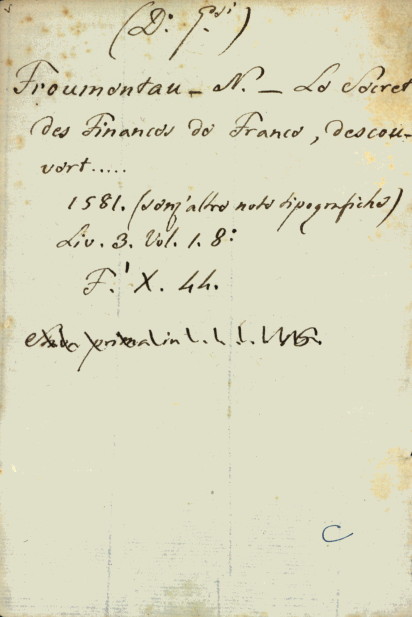 (D: G.si)
Froumentau - N. - Le Secret
des Finances de France, descou-
vert.....
1581. (senz'altre note tipografiche)
Liv. 3. Vol. 1. 8:
F.' X. 44.
prima in L. L. L.
C